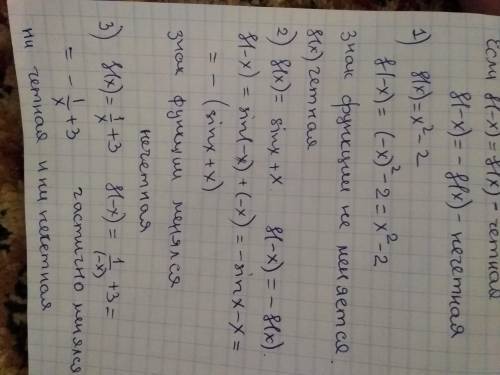 если f(-x) = f(x) - четная
f(-x) = - f(x) - нечетная
1) f(x) = x² - 2
f(-x) = (-x)² - 2 = x² - 2
знак функции не меняется.
f(x) четная
2) f(x) = sinx + x. f(-x) = - f(x).
f(-x) = sin(-x) + (-x) = - sin x - x =
= - (sinx + x)
знак функции менялся
нечетная
3) f(x) = 1/x + 3 f(-x) = 1/(-x) + 3 =
= - 1/x + 3 частично менялся
ни четная и ни нечетная